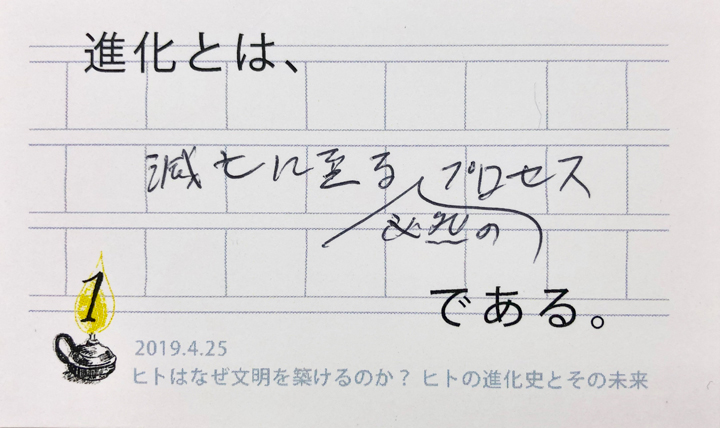 進化とは、
滅亡に至るプロセス
必然の
である。
1
2019.4.25
ヒトはなぜ文明を築けるのか? ヒトの進化史とその未来